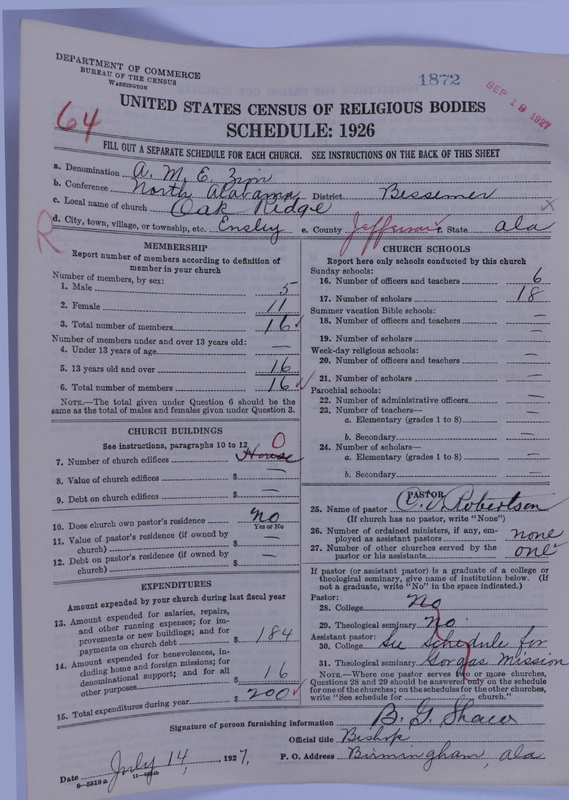 DEPARTMENT OF COMMERCE
BUREAU OF THE CENSUS
WASHINGTON
1872
SEP 19 1927
64
UNITED STATES CENSUS OF RELIGIOUS BODIES
SCHEDULE: 1926
FILL OUT A SEPARATE SCHEDULE FOR EACH CHURCH. SEE INSTRUCTIONS ON THE BACK OF THIS SHEET
a. Denomination A. M. E. Zion
b. Conference North Alabama District Bessemer
c. Local name of church Oak Ridge
x
R
d. City, town, village, or township, etc. Ensley e. County Jefferson f. State ala
MEMBERSHIP
Report number of members according to definition of
member in your church
Number of members, by sex:
1. Male 5
2. Female 11
3. Total number of members 16
Number of members under and over 13 years old:
4. Under 13 years of age —
5. 13 years old and over 16
6. Total number of members 16
NOTE.—The total given under Question 6 should be the
same as the total of males and females given under Question 3.
CHURCH BUILDINGS
See instructions, paragraphs 10 to 12
7. Number of church edifices House 0
8. Value of church edifices $ —
9. Debt on church edifices $ —
10. Does church own pastor's residence no
Yes or No
11. Value of pastor's residence (if owned by
church) $ —
12. Debt on pastor's residence (if owned by
church) $ —
EXPENDITURES
Amount expended by your church during last fiscal year
13. Amount expended for salaries, repairs,
and other running expenses; for im-
provements or new buildings; and for
payments on church debt $ 184
14. Amount expended for benevolences, in-
cluding home and foreign missions; for
denominational support; and for all
other purposes $ 16
15. Total expenditures during year $ 200
CHURCH SCHOOLS
Report here only schools conducted by this church
Sunday schools:
16. Number of officers and teachers 6
17. Number of scholars 18
Summer vacation Bible schools:
18. Number of officers and teachers —
19. Number of scholars —
Week-day religious schools:
20. Number of officers and teachers —
21. Number of scholars —
Parochial schools:
22. Number of administrative officers —
23. Number of teachers—
a. Elementary (grades 1 to 8) —
b. Secondary —
24. Number of scholars—
a. Elementary (grades 1 to 8) —
b. Secondary —
PASTOR
25. Name of pastor Robertson
(If church has no pastor, write "None")
26. Number of ordained ministers, if any, em-
ployed as assistant pastors none
27. Number of other churches served by the
pastor or his assistants one
If pastor (or assistant pastor) is a graduate of a college or
theological seminary, give name of institution below. (If
not a graduate, write "No" in the space indicated.)
Pastor:
28. College No
29. Theological seminary No
Assistant pastor:
30. College See Schedule for
31. Theological seminary Gorgas Mission
NOTE.—Where one pastor serves two or more churches,
Questions 28 and 29 should be answered only on the schedule
for one of the churches; on the schedules for the other churches,
write "See schedule for ____ church."
Signature of person furnishing information B. G. Shaw
Official title Bishop
Date July 14, 1927, P. O. Address Birmingham, ala